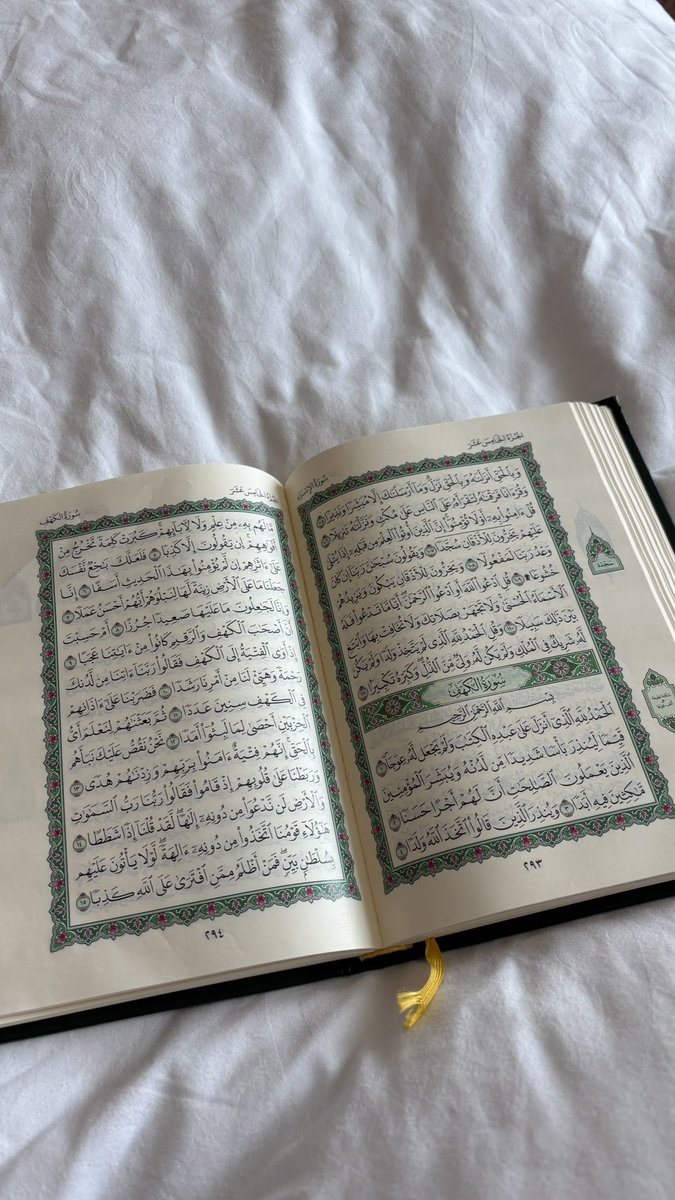 الجُزْءُ الخَامِسَ عَشَرَ
سُورَةُ الإِسْرَاءِ
وَبِٱلْحَقِّ أَنزَلْنَٰهُ وَبِٱلْحَقِّ نَزَلَ ۗ وَمَآ أَرْسَلْنَٰكَ إِلَّا مُبَشِّرًا وَنَذِيرًا ١٠٥
وَقُرْءَانًا فَرَقْنَٰهُ لِتَقْرَأَهُۥ عَلَى ٱلنَّاسِ عَلَىٰ مُكْثٍ وَنَزَّلْنَٰهُ تَنزِيلًا ١٠٦
قُلْ ءَامِنُوا۟ بِهِۦٓ أَوْ لَا تُؤْمِنُوٓا۟ ۚ إِنَّ ٱلَّذِينَ أُوتُوا۟ ٱلْعِلْمَ مِن قَبْلِهِۦٓ إِذَا يُتْلَىٰ
عَلَيْهِمْ يَخِرُّونَ لِلْأَذْقَانِ سُجَّدًا ١٠٧ وَيَقُولُونَ سُبْحَٰنَ رَبِّنَآ إِن كَانَ
وَعْدُ رَبِّنَا لَمَفْعُولًا ١٠٨ وَيَخِرُّونَ لِلْأَذْقَانِ يَبْكُونَ وَيَزِيدُهُمْ
خُشُوعًا ۩ ١٠٩ قُلِ ٱدْعُوا۟ ٱللَّهَ أَوِ ٱدْعُوا۟ ٱلرَّحْمَٰنَ ۖ أَيًّا مَّا تَدْعُوا۟ فَلَهُ
ٱلْأَسْمَآءُ ٱلْحُسْنَىٰ ۚ وَلَا تَجْهَرْ بِصَلَاتِكَ وَلَا تُخَافِتْ بِهَا وَٱبْتَغِ
بَيْنَ ذَٰلِكَ سَبِيلًا ١١٠ وَقُلِ ٱلْحَمْدُ لِلَّهِ ٱلَّذِى لَمْ يَتَّخِذْ وَلَدًا وَلَمْ يَكُن
لَّهُۥ شَرِيكٌ فِى ٱلْمُلْكِ وَلَمْ يَكُن لَّهُۥ وَلِىٌّ مِّنَ ٱلذُّلِّ ۖ وَكَبِّرْهُ تَكْبِيرًۢا ١١١
سُورَةُ الكَهْفِ
بِسْمِ ٱللَّهِ ٱلرَّحْمَٰنِ ٱلرَّحِيمِ
ٱلْحَمْدُ لِلَّهِ ٱلَّذِىٓ أَنزَلَ عَلَىٰ عَبْدِهِ ٱلْكِتَٰبَ وَلَمْ يَجْعَل لَّهُۥ عِوَجَا ۜ ١
قَيِّمًا لِّيُنذِرَ بَأْسًا شَدِيدًا مِّن لَّدُنْهُ وَيُبَشِّرَ ٱلْمُؤْمِنِينَ
ٱلَّذِينَ يَعْمَلُونَ ٱلصَّٰلِحَٰتِ أَنَّ لَهُمْ أَجْرًا حَسَنًا ٢
مَّٰكِثِينَ فِيهِ أَبَدًا ٣ وَيُنذِرَ ٱلَّذِينَ قَالُوا۟ ٱتَّخَذَ ٱللَّهُ وَلَدًا ٤
سَجْدَة
٢٩٣
الجُزْءُ الخَامِسَ عَشَرَ
سُورَةُ الكَهْفِ
مَّا لَهُم بِهِۦ مِنْ عِلْمٍ وَلَا لِءَابَآئِهِمْ ۚ كَبُرَتْ كَلِمَةً تَخْرُجُ مِنْ
أَفْوَٰهِهِمْ ۚ إِن يَقُولُونَ إِلَّا كَذِبًا ٥ فَلَعَلَّكَ بَٰخِعٌ نَّفْسَكَ
عَلَىٰٓ ءَاثَٰرِهِمْ إِن لَّمْ يُؤْمِنُوا۟ بِهَٰذَا ٱلْحَدِيثِ أَسَفًا ٦ إِنَّا
جَعَلْنَا مَا عَلَى ٱلْأَرْضِ زِينَةً لَّهَا لِنَبْلُوَهُمْ أَيُّهُمْ أَحْسَنُ عَمَلًا ٧
وَإِنَّا لَجَٰعِلُونَ مَا عَلَيْهَا صَعِيدًا جُرُزًا ٨ أَمْ حَسِبْتَ
أَنَّ أَصْحَٰبَ ٱلْكَهْفِ وَٱلرَّقِيمِ كَانُوا۟ مِنْ ءَايَٰتِنَا عَجَبًا ٩
إِذْ أَوَى ٱلْفِتْيَةُ إِلَى ٱلْكَهْفِ فَقَالُوا۟ رَبَّنَآ ءَاتِنَا مِن لَّدُنكَ
رَحْمَةً وَهَيِّئْ لَنَا مِنْ أَمْرِنَا رَشَدًا ١٠ فَضَرَبْنَا عَلَىٰٓ ءَاذَانِهِمْ
فِى ٱلْكَهْفِ سِنِينَ عَدَدًا ١١ ثُمَّ بَعَثْنَٰهُمْ لِنَعْلَمَ أَىُّ
ٱلْحِزْبَيْنِ أَحْصَىٰ لِمَا لَبِثُوٓا۟ أَمَدًا ١٢ نَّحْنُ نَقُصُّ عَلَيْكَ نَبَأَهُم
بِٱلْحَقِّ ۚ إِنَّهُمْ فِتْيَةٌ ءَامَنُوا۟ بِرَبِّهِمْ وَزِدْنَٰهُمْ هُدًى ١٣
وَرَبَطْنَا عَلَىٰ قُلُوبِهِمْ إِذْ قَامُوا۟ فَقَالُوا۟ رَبُّنَا رَبُّ ٱلسَّمَٰوَٰتِ
وَٱلْأَرْضِ لَن نَّدْعُوَا۟ مِن دُونِهِۦٓ إِلَٰهًا ۖ لَّقَدْ قُلْنَآ إِذًا شَطَطًا ١٤
هَٰٓؤُلَآءِ قَوْمُنَا ٱتَّخَذُوا۟ مِن دُونِهِۦٓ ءَالِهَةً ۖ لَّوْلَا يَأْتُونَ عَلَيْهِم
بِسُلْطَٰنٍۭ بَيِّنٍ ۖ فَمَنْ أَظْلَمُ مِمَّنِ ٱفْتَرَىٰ عَلَى ٱللَّهِ كَذِبًا ١٥
٢٩٤